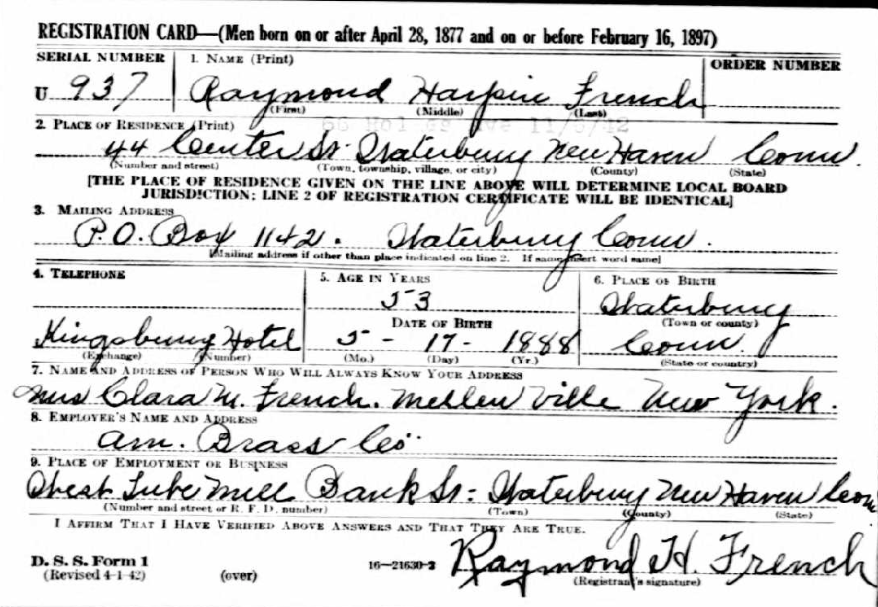 REGISTRATION CARD—(Men born on or after April 28, 1877 and on or before February 16, 1897)
SERIAL NUMBER 1. NAME (Print) ORDER NUMBER
U 937 Raymond Harpin French
(First) (Middle) (Last)
2. PLACE OF RESIDENCE (Print) 11/6/42
44 Center St. Waterbury New Haven Conn.
(Number and street) (Town, township, village, or city) (County) (State)
[THE PLACE OF RESIDENCE GIVEN ON THE LINE ABOVE WILL DETERMINE LOCAL BOARD
JURISDICTION; LINE 2 OF REGISTRATION CERTIFICATE WILL BE IDENTICAL]
3. MAILING ADDRESS
P.O. Box 1142. Waterbury Conn.
[Mailing address if other than place indicated on line 2. If same insert word same]
4. TELEPHONE 5. AGE IN YEARS 6. PLACE OF BIRTH
53 Waterbury
DATE OF BIRTH (Town or county)
Kingsbury Hotel 5 - 17 - 1888 Conn
(Exchange) (Number) (Mo.) (Day) (Yr.) (State or country)
7. NAME AND ADDRESS OF PERSON WHO WILL ALWAYS KNOW YOUR ADDRESS
Mrs Clara M. French. Mellen Ville New York.
8. EMPLOYER'S NAME AND ADDRESS
Am. Brass Co.
9. PLACE OF EMPLOYMENT OR BUSINESS
West Tube Mill Bank St - Waterbury New Haven Conn
(Number and street or R. F. D. number) (Town) (County) (State)
I AFFIRM THAT I HAVE VERIFIED ABOVE ANSWERS AND THAT THEY ARE TRUE.
D. S. S. Form 1
(Revised 4-1-42) (over) 16—21630-2 Raymond H. French
(Registrant's signature)